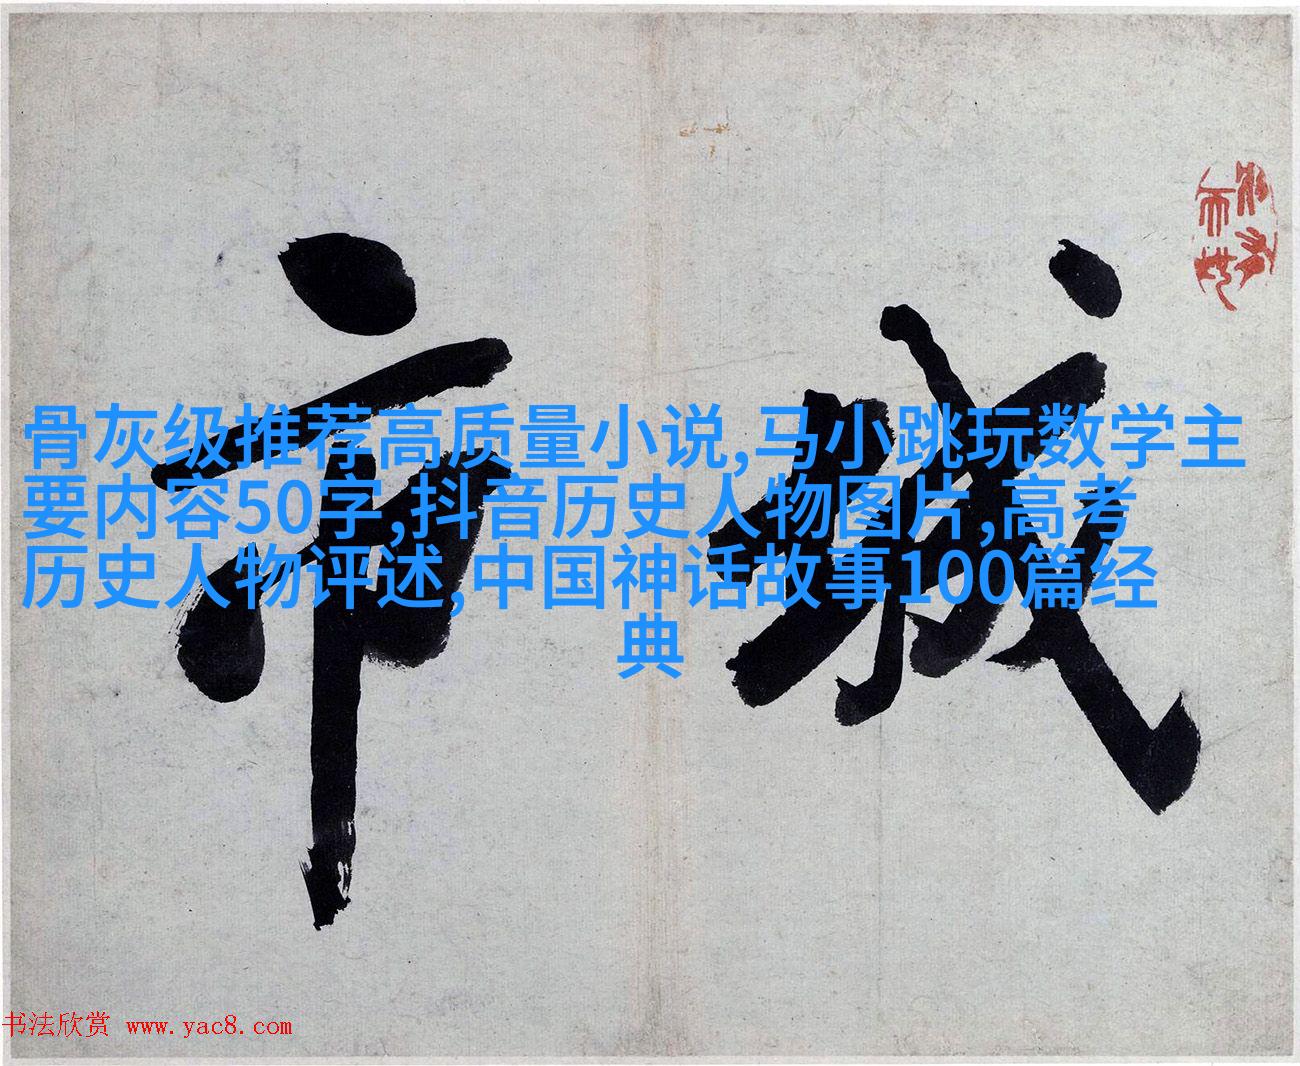 城市
骨灰级推荐高质量小说,马小跳玩数学主
要内容50字,抖音历史人物图片,高考
历史人物评述,中国神话故事100篇经
典
书法欣赏 www.yac8.com